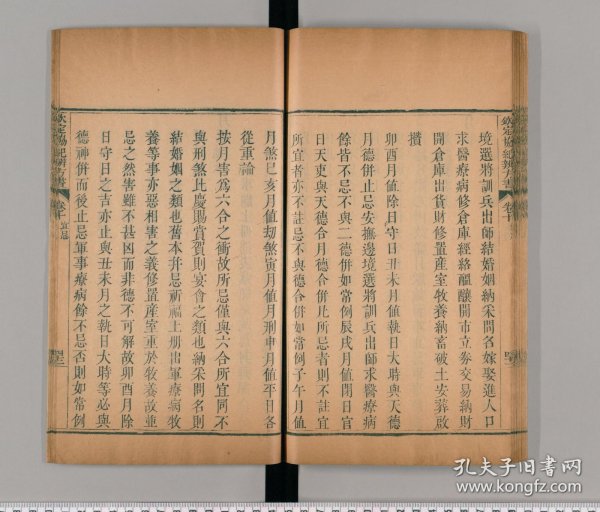 欽定協紀辨方書 卷十
境選將訓兵出師結婚姻納采問名嫁娶進人口
求醫療病修倉庫經絡醞釀開市立券交易納財
開倉庫出貨財修置產室牧養納畜破土安葬啟
攢
卯酉月值除日守日丑未月值執日大時與天德
月德併止忌安撫邊境選將訓兵出師求醫療病
餘皆不忌不與二德併如常例辰戌月值閉日官
日天吏與天德合月德合併比所忌者則不註宜
所宜者亦不註忌不與德合併如常例子午月值
月煞巳亥月值劫煞寅月值月刑申月值平日各
從重論
按月害為六合之衝故所忌僅與六合所宜同不
與刑煞比慶賜賞賀則宴會之類也納采問名則
結婚姻之類也舊本并忌祈福上册出軍療病牧
養等事亦惡相害之義修置產室重於牧養故並
忌之然害雖不甚凶而非德不可解故卯酉月除
日守日之吉亦止與丑未月之執日大時等必與
德神併而後止忌軍事療病餘不忌否則如常例
欽定協紀辨方書 卷十 宜忌
孔夫子旧书网
www.kongfz.com